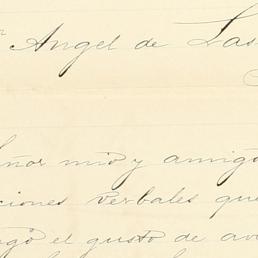 n Angel de Las
eñor mio y amigo
ciones verbales que
go el gusto de